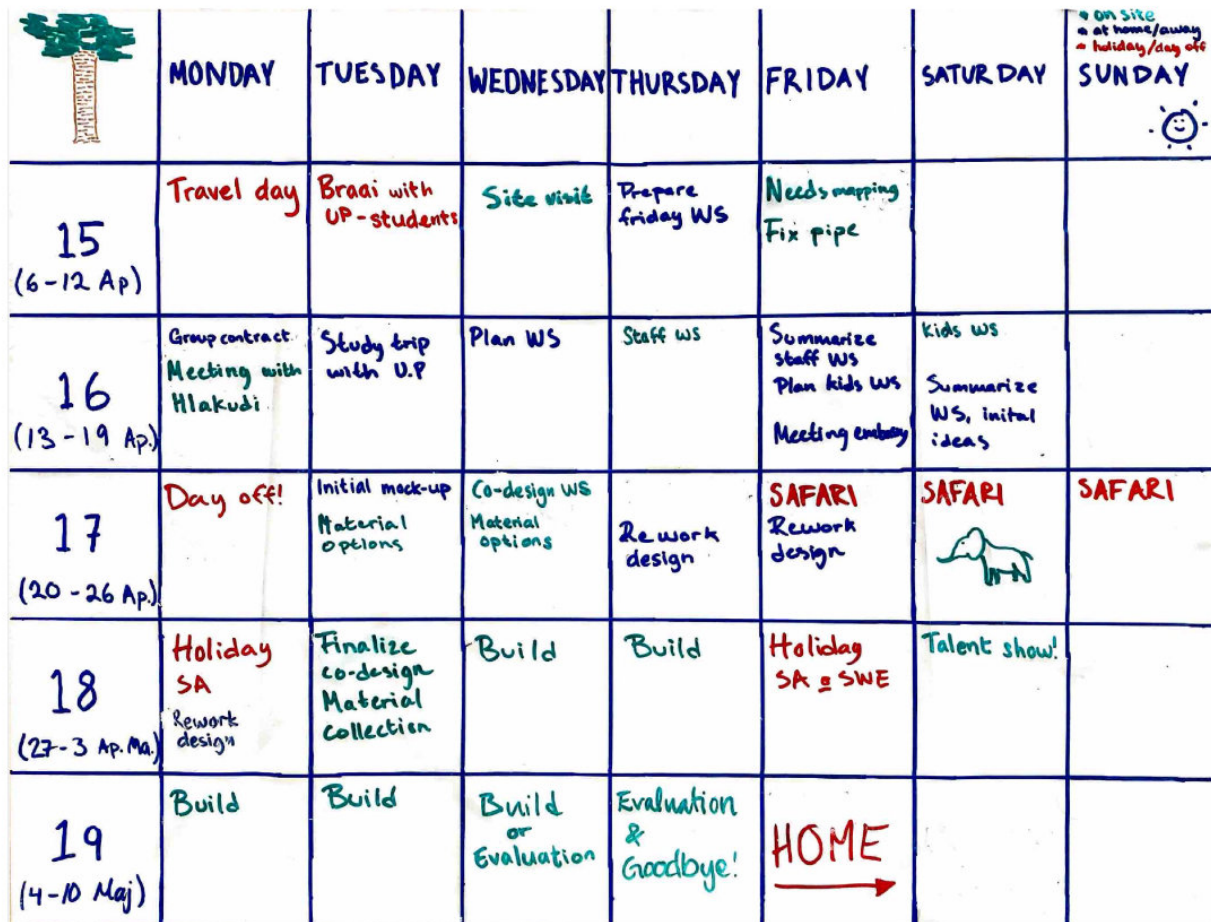 • on site
• at home/away
• holiday/day off
MONDAY
TUESDAY
WEDNESDAY
THURSDAY
FRIDAY
SATURDAY
SUNDAY
15
(6-12 Ap)
Travel day
Braai with
UP-students
Site visit
Prepare
friday WS
Needs mapping
Fix pipe
16
(13-19 Ap.)
Group contract
Meeting with
Hlakudi
Study trip
with U.P
Plan WS
Staff WS
Summarize
staff WS
Plan kids WS
Meeting embassy
Kids WS
Summarize
WS, inital
ideas
17
(20-26 Ap.)
Day off!
Initial mock-up
Material
options
Co-design WS
Material
options
Rework
design
SAFARI
Rework
design
SAFARI
SAFARI
18
(27-3 Ap. Ma.)
Holiday
SA
Rework
design
Finalize
co-design
Material
collection
Build
Build
Holiday
SA & SWE
Talent show!
19
(4-10 Maj)
Build
Build
Build
or
Evaluation
Evaluation
&
Goodbye!
HOME